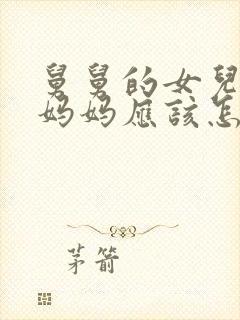 舅舅的女兒
妈妈应該怎
茅箭